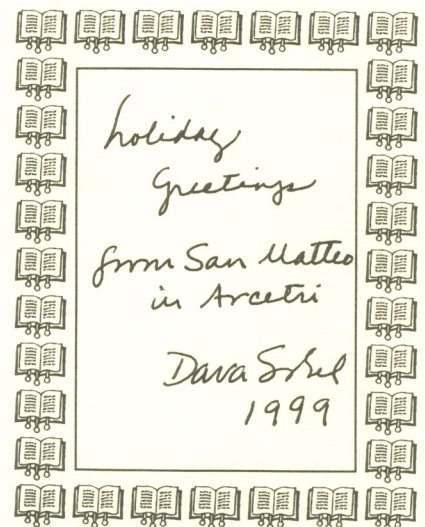 holiday
Greetings
from San Matteo
in Arcetri
Dava Sobel
1999